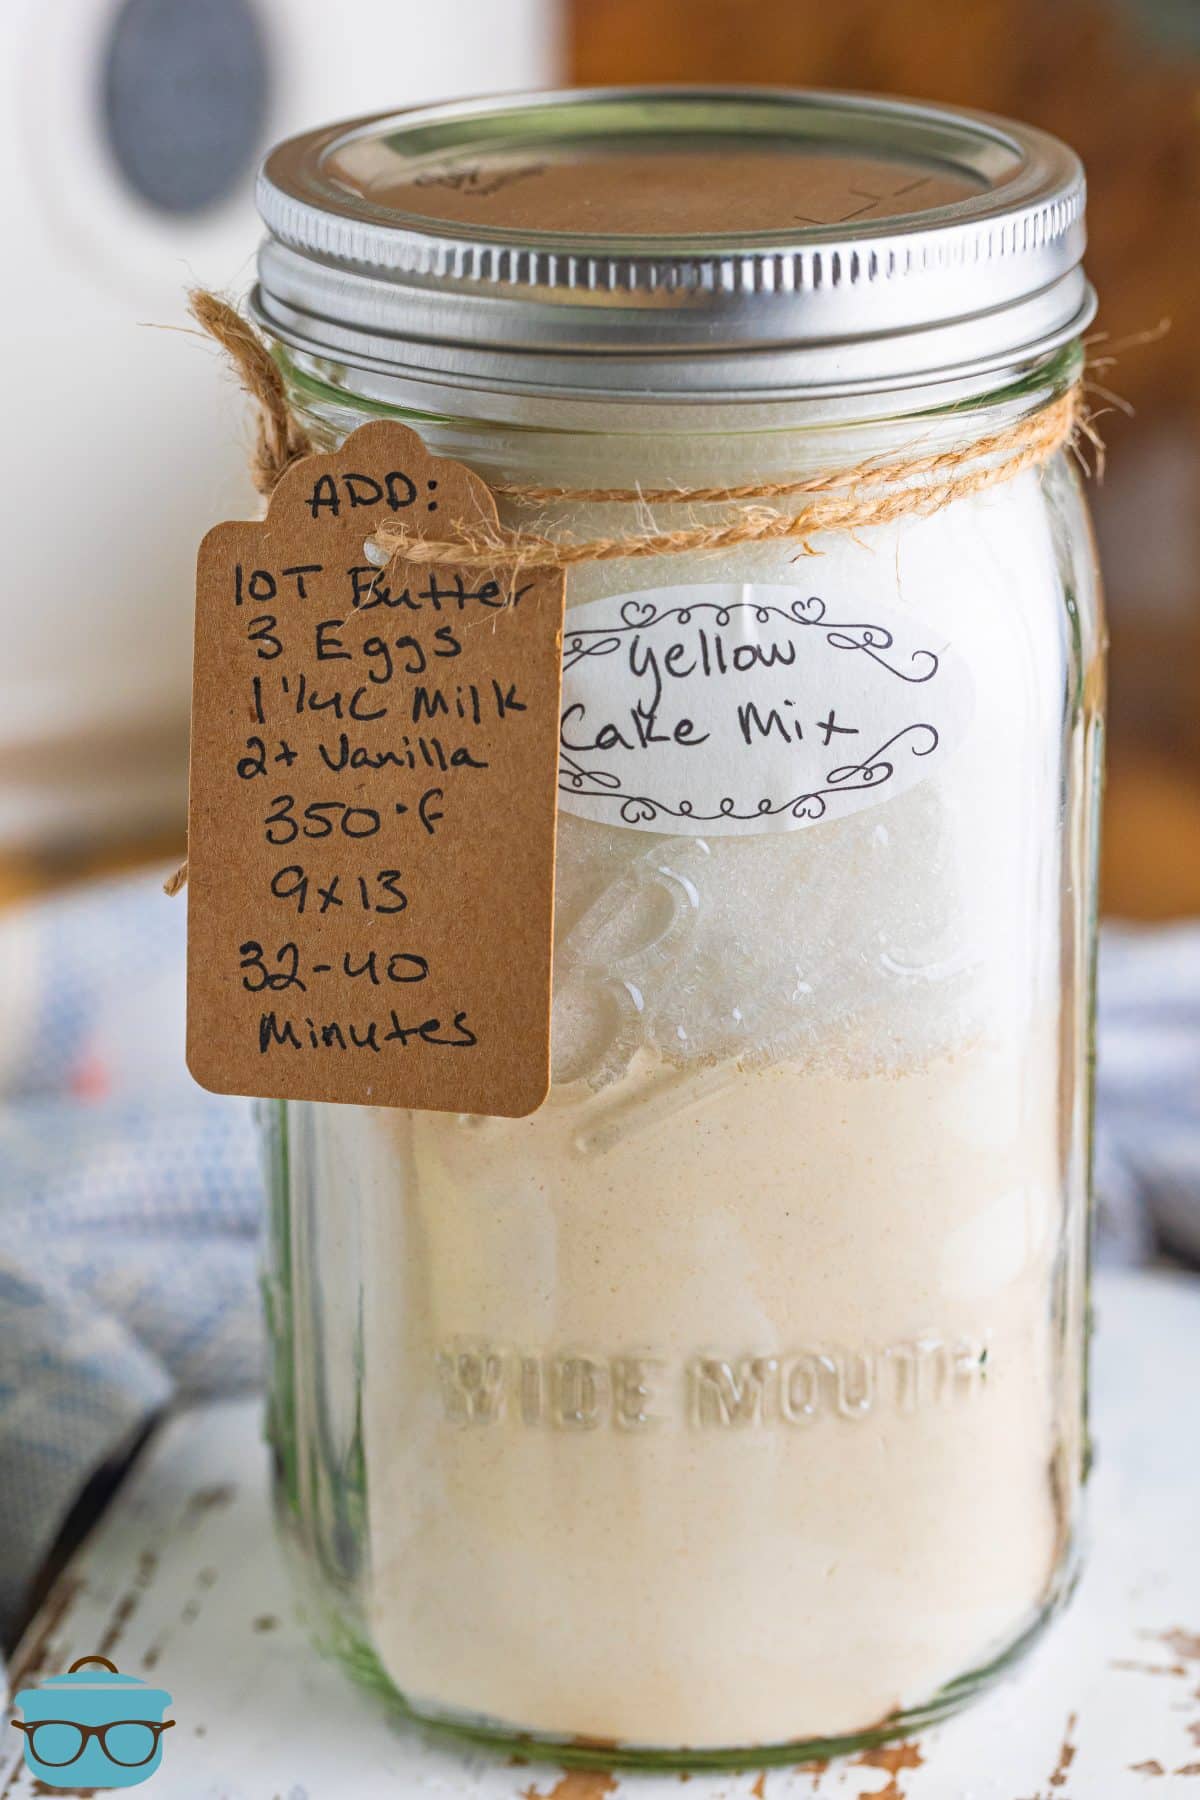 ADD:
10T Butter
3 Eggs
1 1/4C Milk
2t Vanilla
350°F
9x13
32-40
Minutes
Yellow
Cake Mix
WIDE MOUTH